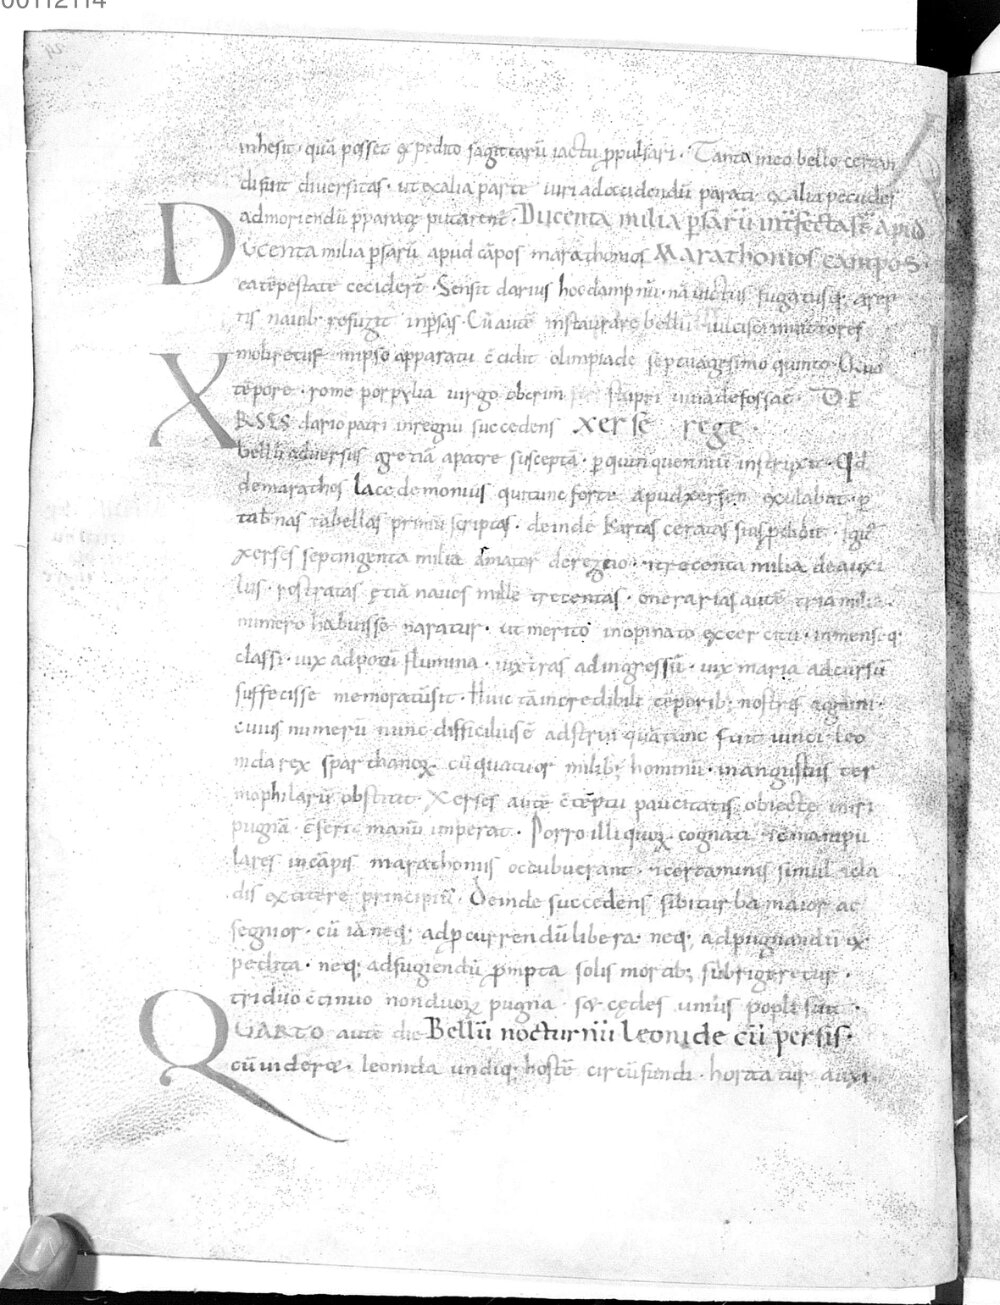 00112114
inhesit · quā posset expedito sagittarū iactu ꝓpulsari · Tanta in eo bello certan
di fuit diversitas · ut ex alia parte uiri ad occidendū parati · ex alia pecudes
ad moriendū p̱paratę putarent̄ · Ducenta milia ꝑsarū interfecta sē apud
DUCENTA milia ꝑsarū apud cāpos marathonios MARAThonios campos ·
ea tēpestate ceciderт̄ · Sensit darius hoc dampnū · nā uictus fugatusq; arrep
tis nauib; refugit in ꝑsas · Cū autē instaurare bellū ulcisci in uictores
moliretur · in ipso apparatu c̄cidit olimpiade septuagesimo quinto · Quo
tēpore · rome porpylia uirgo ob crim stupri uiua defossa ē · DE
XERSES dario patri in regnū succedens Xerse rege ·
bellū adversus gretiā a patre susceptā · ꝑ quinquenniū instruxit · Qd
demarathos lacedemonius qui tunc forte apud xersen exulabat · ꝑ
tabnas tabellas primū scriptas · deinde kartas ceratas suis ꝓdidit · igit̄
xerses septingenta milia armator̄ de regno · & trecenta milia de auxi
liis · rostratas etiā naues mille trecentas · onerarias autē tria milia ·
numero habuisse naratur · ut merito inopinato exercitu · inmenseq;
classi · uix ad potū flumina · uix t̄ras ad ingressū · uix maria ad cursū
suffecisse memoratū sit · Huic tā incredibili tēporib; nostris agmini ·
cuius numerū nunc difficilius ē adstrui quā tunc fuit uinci leo
nida rex sparthanoꝝ · cū quatuor milib; hominū · in angustiis ter
mophilarū obstitit · Xerses autē c̄tēptu paucitatis obiectę iniri
pugnā · c̄seri manū imperat · Porro illi quoꝝ cognati & cōmanipu
lares in cāpis marathoniis occubuerant · & certaminis simul & cla
dis extitere principiū · Deinde succedens sibi turba maior ac
segnior · cū iā neq; ad ꝓcurrendū libera · neq; ad pugnandū ex
pedita · neq; ad fugiendū ꝓmpta solis mortib; subrigeretur ·
triduo c̄tinuo non duoꝝ pugna · sȝ cędes unius popli fuit ·
QUARTO autē die Bellū nocturnū leonide cū persis ·
cū uideret · leonida undiq; hostē circūfundi · hortatur auxi